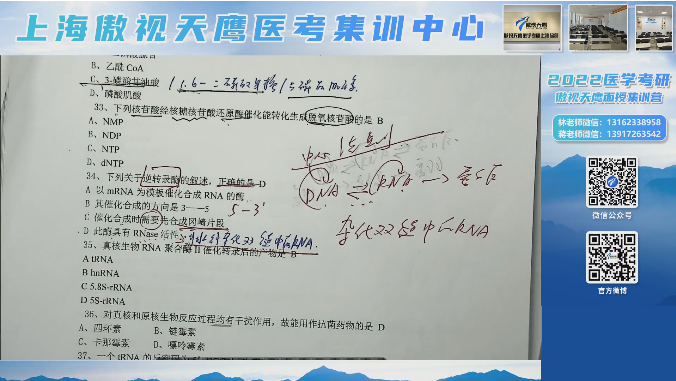 上海傲视天鹰医考集训中心
B、乙酰 CoA
C、3-磷酸甘油酸
D、磷酸肌酸
33、下列核苷酸经核糖核苷酸还原酶催化能转化生成脱氧核苷酸的是 B
A、NMP
B、NDP
C、NTP
D、dNTP
34、下列关于逆转录酶的叙述，正确的是 D
A 以 mRNA 为模板催化合成 RNA 的酶
B 其催化合成的方向是 3——5
5-3'
C 催化合成时需要先合成冈崎片段
D 此酶具有 RNase 活性
35、真核生物 RNA 聚合酶 II 催化转录后的产物是 B
A tRNA
B hnRNA
C 5.8S-rRNA
D 5S-rRNA
36、对真核和原核生物反应过程均有干扰作用，故能用作抗菌药物的是 D
A、四环素 B、链霉素
C、卡那霉素 D、嘌呤霉素
37、一个 tRNA 的反密码
DNA RNA 蛋白质
杂化双链中的RNA
2022医学考研
傲视天鹰面授集训营
林老师微信：13162338958
蒋老师微信：13917263542
微信公众号
官方微博